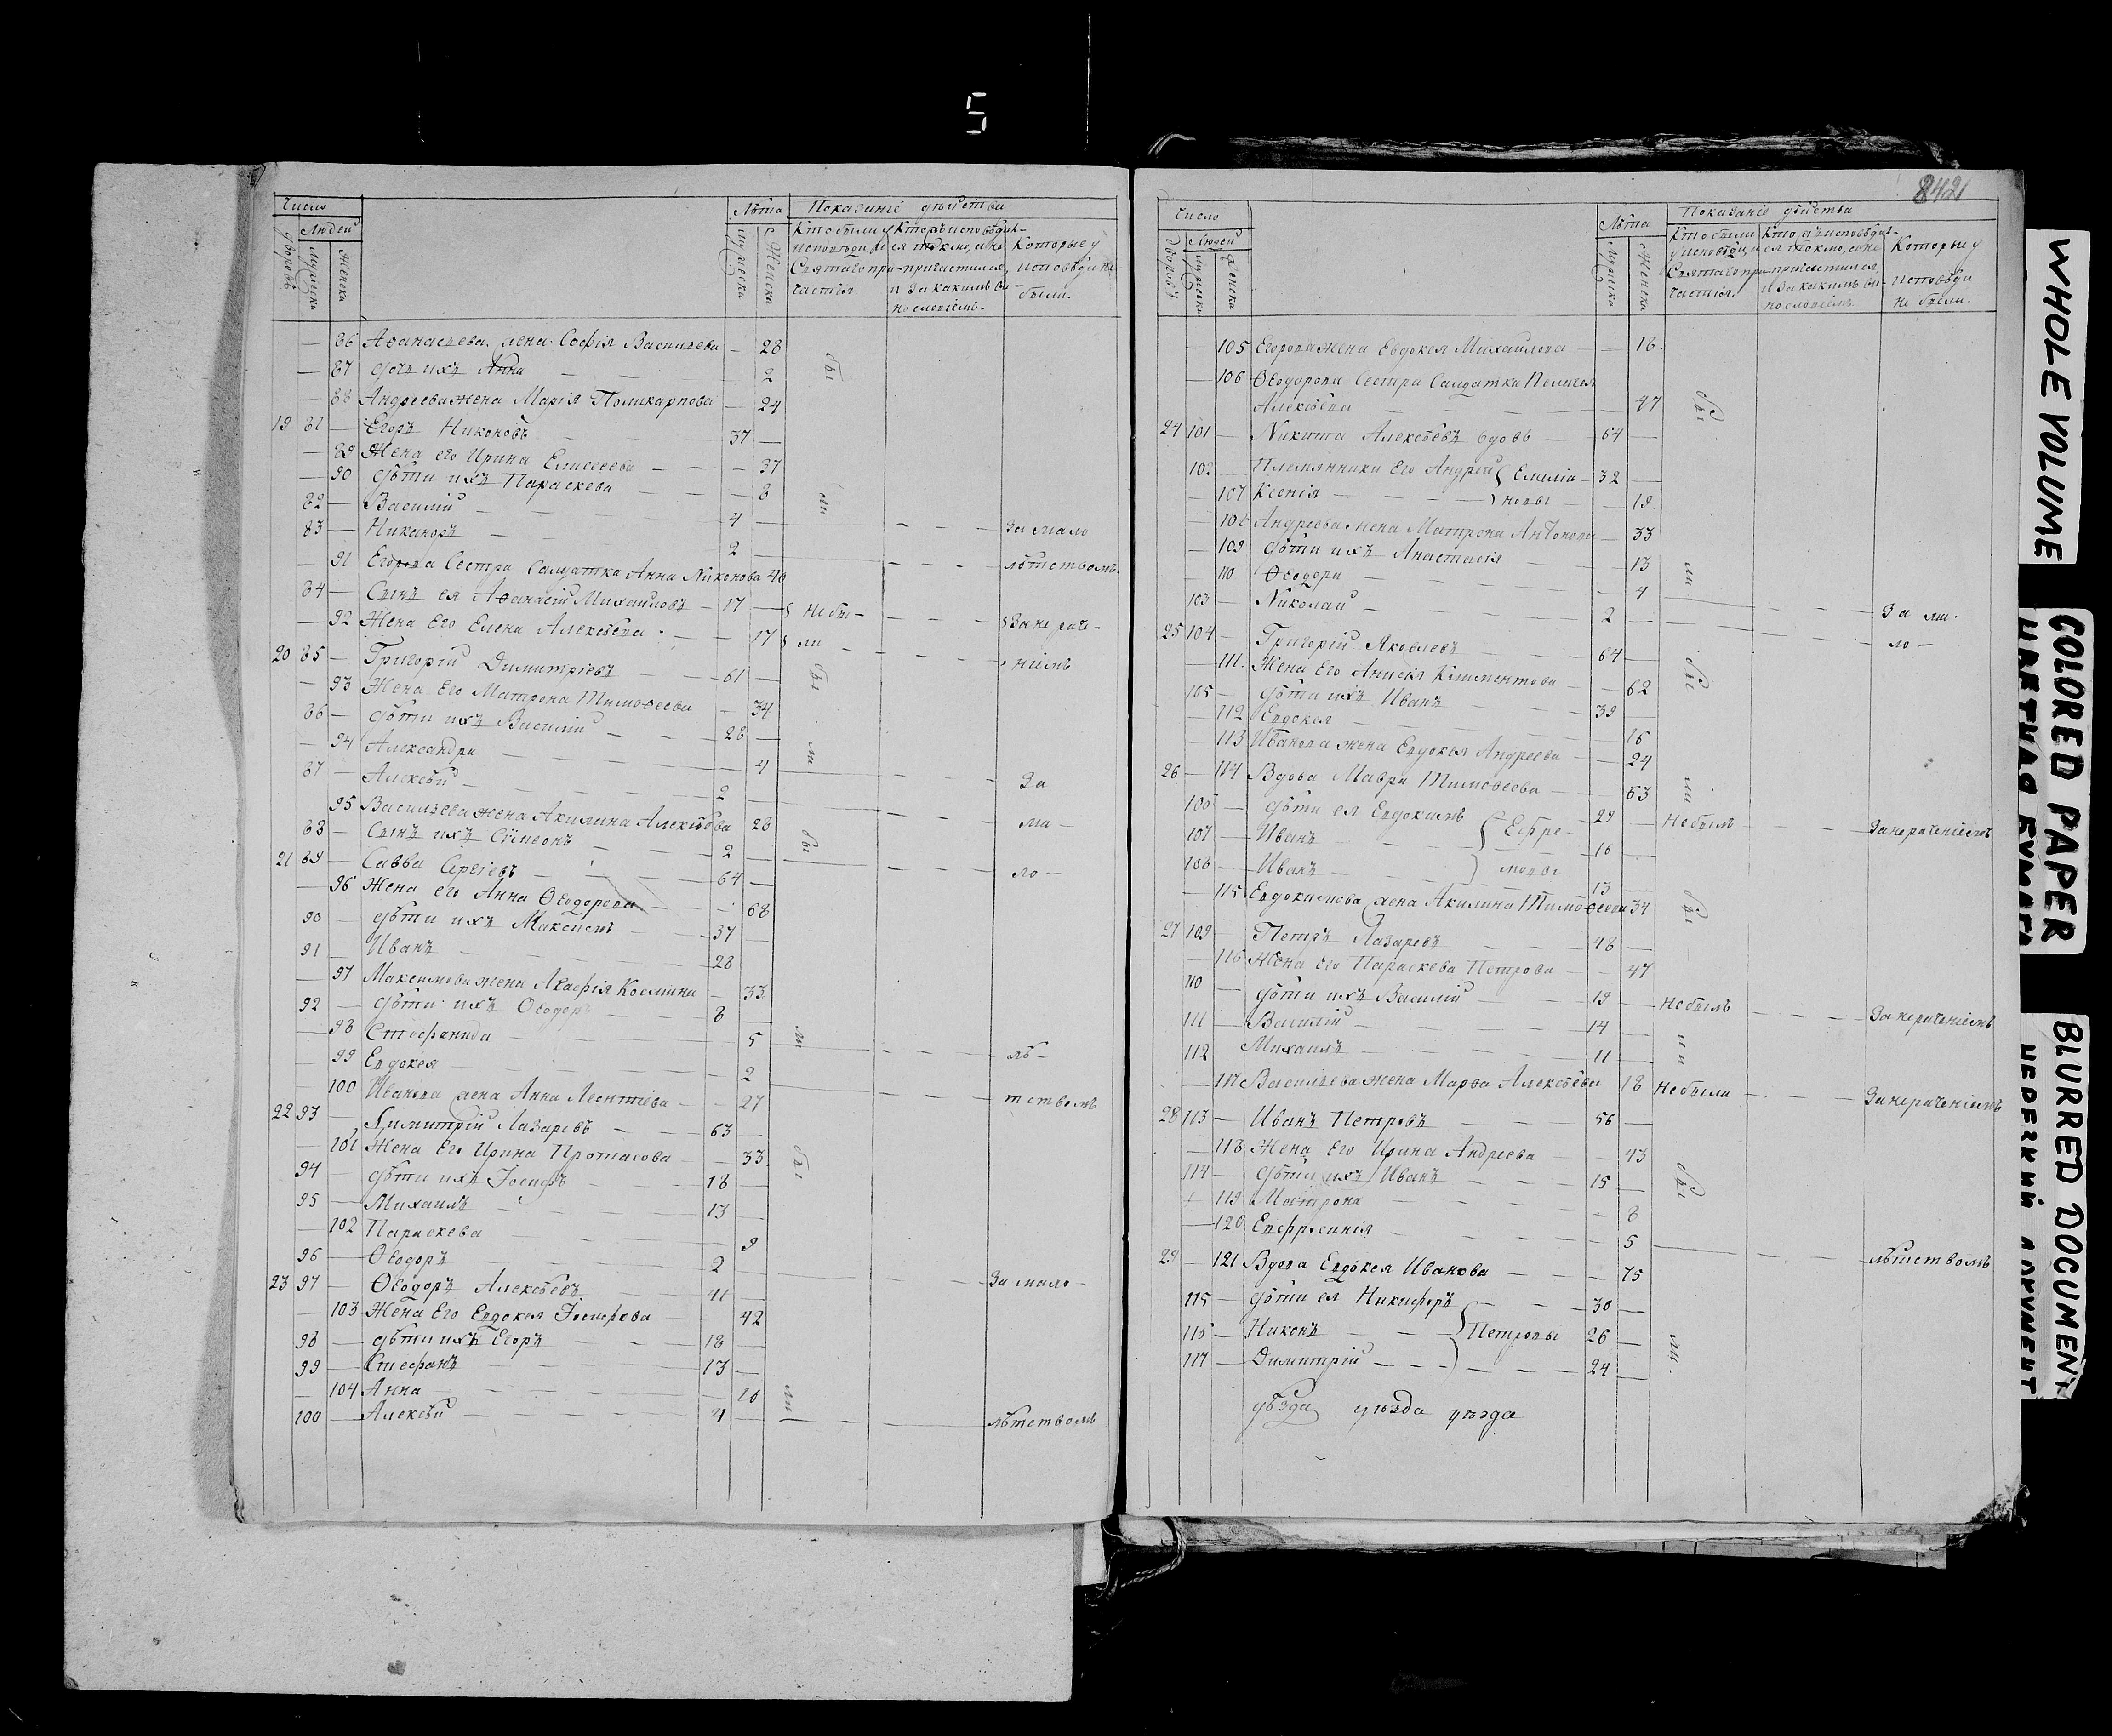 5
Число
Людей
дворовъ
Мужеска
Женска
Лѣта
Мужеска
Женска
Показаніе дѣйства
Кто были у исповѣди и Святаго причастія.
Которые у исповѣди не были.
— 86 Аѳанасьева жена Софія Васильева — 28
— 87 дочь ихъ Анна — — 2
— 88 Андреева жена Марія Поликарпова — 24
19 81 — Егоръ Никоновъ 37 —
— 89 Жена его Ирина Елисеева — — 37
— 90 дѣти ихъ Параскева — — 8
82 — Василій — 4 —
83 — Никаноръ — 2 — За мало
— 91 Егорова Сестра Салдатка Анна Никонова 40 лѣтствомъ.
84 — Сынъ ея Аѳанасій Михайловъ — 17 — Не бы-
— 92 Жена Его Елена Алексѣева — 17 ли За нераче-
20 85 — Григорій Димитріевъ — 61 — ніемъ
— 93 Жена Его Матрона Тимоѳеева — 34
86 — дѣти ихъ Василій — 28 —
— 94 Александра — 4
87 — Алексѣй — 2 — За
— 95 Васильева жена Акилина Алексѣева 28 ма-
88 — Сынъ ихъ Сѷмеонъ — 2
21 89 — Савва Сергіевъ — 64 — ло-
— 96 Жена его Анна Ѳеодорова — 68
90 — дѣти ихъ Максимъ — 37 —
91 — Иванъ — 28
— 97 Максимова жена Агафія Космина — 33
92 — дѣти ихъ Ѳеодоръ — 8
— 98 Стефанида 5 лѣ-
— 99 Евдокея — 2
— 100 Иванова жена Анна Леонтіева — 27 тствомъ
22 93 — Димитрій Лазаревъ — 63 —
— 101 Жена Его Ирина Протасова — 33
94 — дѣти ихъ Іосифъ — 18 —
95 — Михаилъ 13 —
— 102 Параскева — 9
96 — Ѳеодоръ — 2
23 97 — Ѳеодоръ Алексѣевъ — 41 — За мало-
— 103 Жена Его Евдокея Іосифова 42
98 — дѣти ихъ Егоръ 18 —
99 — Стефанъ 13 —
— 104 Анна — 10
100 — Алексѣй — 4 — лѣтствомъ
842
Число
Людей
дворовъ
Мужеска
Женска
Лѣта
Мужеска
Женска
Показаніе дѣйства
Кто были у исповѣди и Святаго причастія.
Которые у исповѣди не были.
— 105 Егорова жена Евдокея Михаилова — — 18.
— 106 Ѳеодорова Сестра Салдатка Пелагея
Алексѣева — 47
24 101 — Никита Алексѣевъ вдовъ — 64 —
102 — Племянники Его Андрей Емелья- 32 —
— 107 Ксенія — новы — 19.
— 108 Андреева жена Матрона Антонова — 33
— 109 дѣти ихъ Анастасія 13
110 Ѳеодора — 4
103 — Николай — 2 — За ма-
25 104 — Григорій Яковлевъ 64 — ло-
— 111. Жена Его Анисія Климентова — 62
105 — дѣти ихъ Иванъ — 39
— 112 Евдокея — 16
— 113 Иванова жена Евдокея Андреева — 24
26 — 114 Вдова Мавра Тимоѳеева — 53
106 — дѣти ея Евдокимъ Ефре- 29 — Небылъ За нераченіемъ
107 — Иванъ — 16 —
108 — Иванъ — мовы 13 —
— 115 Евдокимова жена Акилина Тимоѳеева 34
27 109 — Петръ Лазаревъ 48 —
— 116 Жена Его Параскева Петрова — 47
110 — дѣти ихъ Василій — 19 — Небылъ За нераченіемъ
111 — Василій — 14 —
112 Михаилъ — 11 —
— 117 Васильева жена Марѳа Алексѣева 18 Небыла За нераченіемъ
28 113 — Иванъ Петровъ — 56 —
— 118 Жена Его Ирина Андреева — 43
114 — дѣти ихъ Иванъ — 15 —
119 Матрона — 8
— 120 Евфросинія — 5 —
29 — 121 Вдова Евдокея Иванова — 75 лѣтствомъ
115 — дѣти ея Никифоръ — 30 —
116 — Никонъ — Петровы 26 —
117 — Димитрій — 24 —
уѣзда уѣзда уѣзда
WHOLE VOLUME
COLORED PAPER
BLURRED DOCUMENT